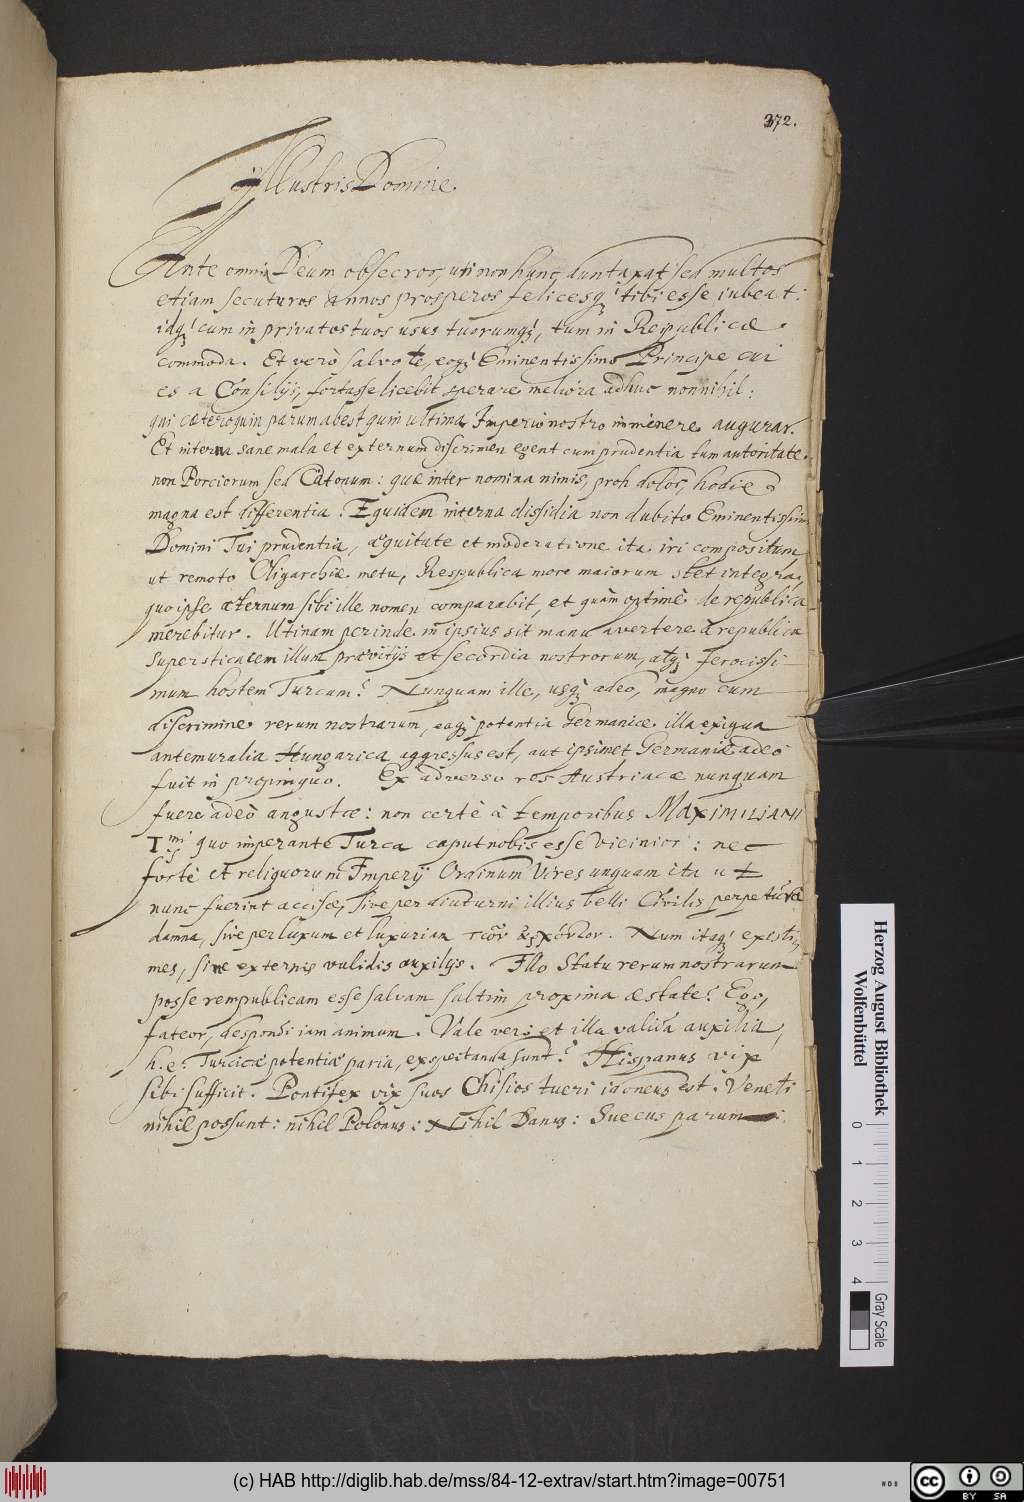 372.
Illustris Domine.
Ante omnia Deum obsecror, uti non hunc duntaxat sed multos
etiam secuturos annos prosperos felicesq; tibi esse iubeat:
idq; cum in privatos tuos usus tuorumq;, tum in Reipublicæ
commoda. Et verò salvo te, eoq; Eminentissimo Principe cui
es a Consilijs, fortasse licebit sperare meliora adhuc nonnihil:
qui cæteroquin parum abest quin ultima Imperio nostro imminere augurar.
Et interna sane mala et externum discrimen egent cum prudentia tum autoritate.
non Porciorum sed Catonum: quæ inter nomina nimis, proh dolor, hodie
magna est differentia. Equidem interna dissidia non dubito Eminentissim
Domini Tui prudentia, æquitate et moderatione ita iri compositum
ut remoto Oligarchiæ metu, Respublica more maiorum stet integra,
quo ipse æternum sibi ille nomen comparabit, et quàm optimè de republica
merebitur. Utinam perinde in ipsius sit manu avertere à republica
superstitem illum præ vitijs et secordia nostrorum, atq; ferocissi-
mum hostem Turcam! Nunquam ille, usq; adeo, magno cum
discrimine rerum nostrarum, eaq; potentia Germanicæ illa exigua
antemuralia Hungarica aggressus est, aut ipsimet Germaniæ adeò
fuit in propinquo. Ex adverso res Austriacæ nunquam
fuere adeò angustæ: non certè à temporibus MAXIMILIANI
I.mi quo imperante Turca caput nobis esse vicinior: nec
fortè et reliquorum Imperij Ordinum vires unquam ita ut
nunc fuerint accisæ, sive per diuturni illius belli Civilis perpetua
damna, sive per luxum et luxuriam τῶν ἀρχόντων. Num itaq; existi-
mes, sine externis validis auxilijs. Illo statu rerum nostrarum
posse rempublicam esse salvam saltim proxima æstate? Ego,
fateor, despondi iam animum. Vale verò et illa valida auxilia,
h.e. Turcicæ potentiæ paria, exspectanda sunt? Hispanus vix
sibi sufficit. Pontifex vix suos Chisios tueri idoneus est: Veneti
nihil possunt: nihil Polonus: Nihil Danus: Suecus parum:
Herzog August Bibliothek
Wolfenbüttel
0 1 2 3 4
Gray Scale
(c) HAB http://diglib.hab.de/mss/84-12-extrav/start.htm?image=00751
cc BY SA